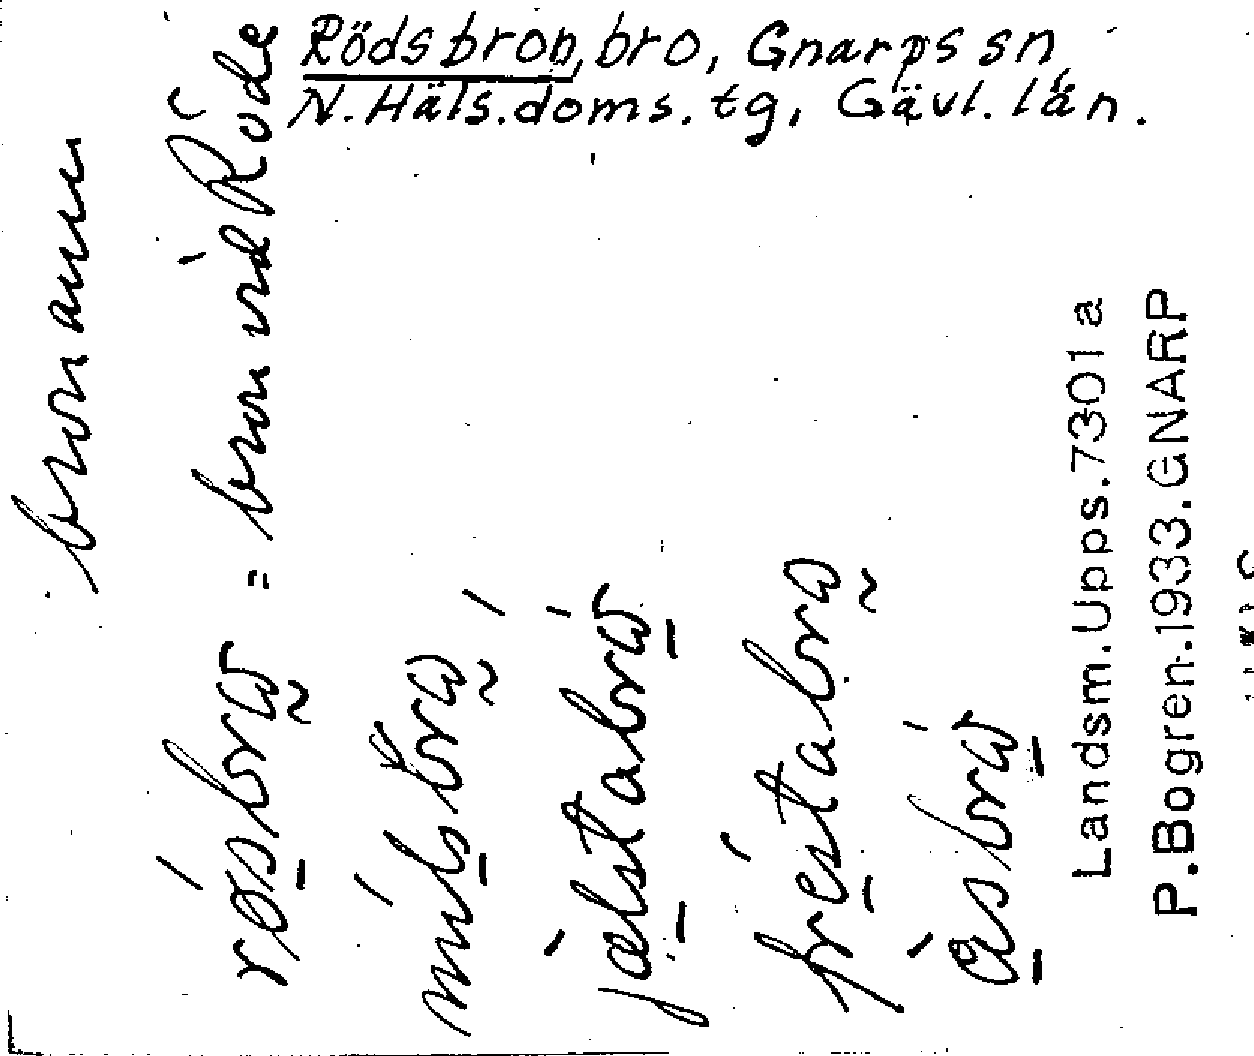 Rödsbron, bro, Gnarps sn,
N. Häls. doms. tg, Gävl. län.
bronamn
røsbrω = bron vid Röde
milsbrω
jælstabrω
prestabrω
åsbrω
Landsm. Upps. 7301 a
P. Bogren. 1933. GNARP